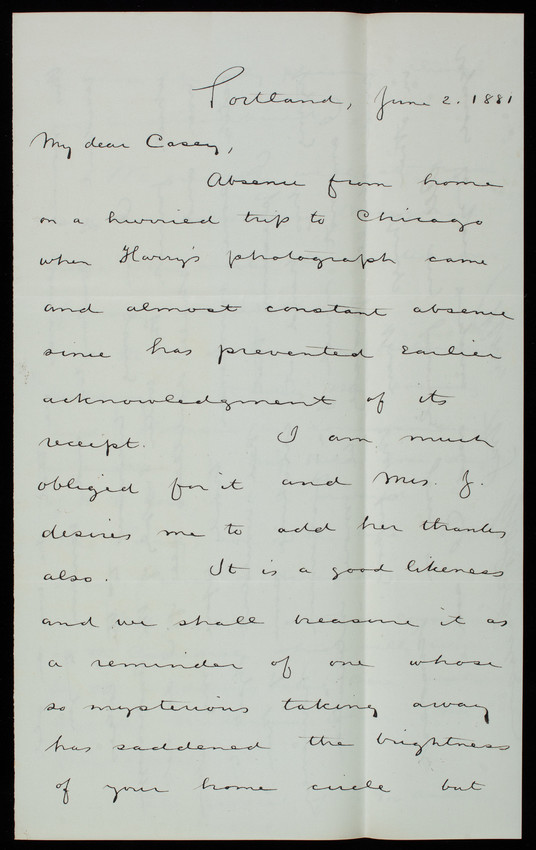 Portland, June 2. 1881
My dear Casey,
Absence from home
on a hurried trip to Chicago
when Harry's photograph came
and almost constant absence
since has prevented earlier
acknowledgment of its
receipt. I am much
obliged for it and Mrs. J.
desires me to add her thanks
also. It is a good likeness
and we shall treasure it as
a reminder of one whose
so mysterious taking away
has saddened the brightness
of your home circle but